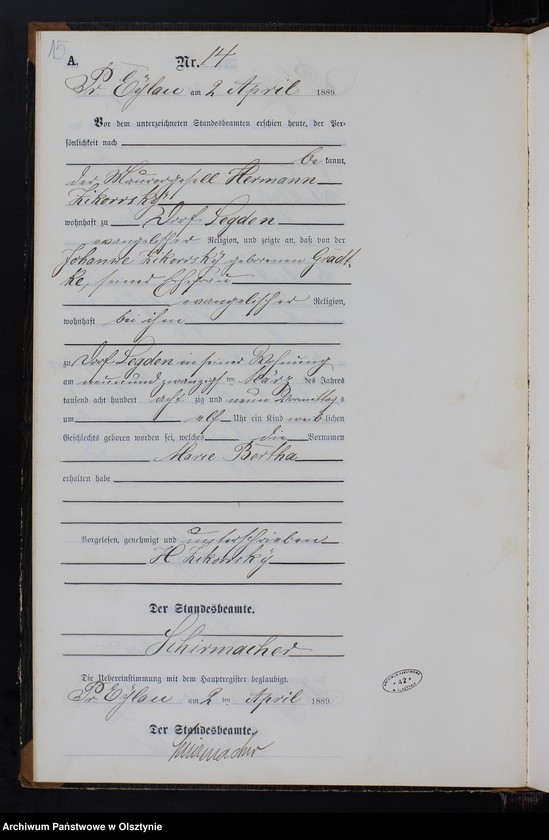 15
A.
Nr. 14
Pr Eylau am 2 April 1889.
Vor dem unterzeichneten Standesbeamten erschien heute, der Per-
sönlichkeit nach
be kannt,
der Maurergesell Hermann
Zikorrsky
wohnhaft zu Dorf Legden
evangelischer Religion, und zeigte an, daß von der
Johanne Zikorrsky geborenen Gradt-
ke, seiner Ehefrau
evangelischer Religion,
wohnhaft bei ihm
zu Dorf Legden in seiner Wohnung
am neunundzwanzigsten März des Jahres
tausend acht hundert acht zig und neun Vormittags
um elf Uhr ein Kind weib-lichen
Geschlechts geboren worden sei, welches die Vornamen
Marie Bertha
erhalten habe
Vorgelesen, genehmigt und unterschrieben
H Zikorrsky
Der Standesbeamte.
Schirmacher
Die Uebereinstimmung mit dem Hauptregister beglaubigt.
Pr Eylau am 2 ten April 1889.
Der Standesbeamte.
Schirmacher
ARCHIWUM PAŃSTWOWE
* 42 *
W OLSZTYNIE
Archiwum Państwowe w Olsztynie